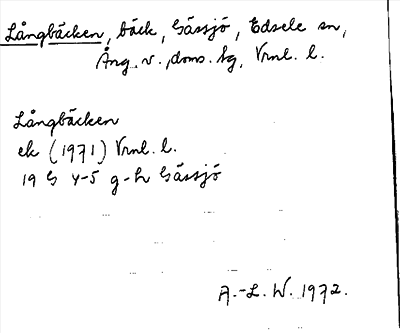 Långbäcken, bäck, Gässjö, Edsele sn,
Ång. v., doms. tg, Vrnl. l.
Långbäcken
ek (1971) Vrnl. l.
19 G 4-5 g-h Gässjö
A.-L. W. 1972.